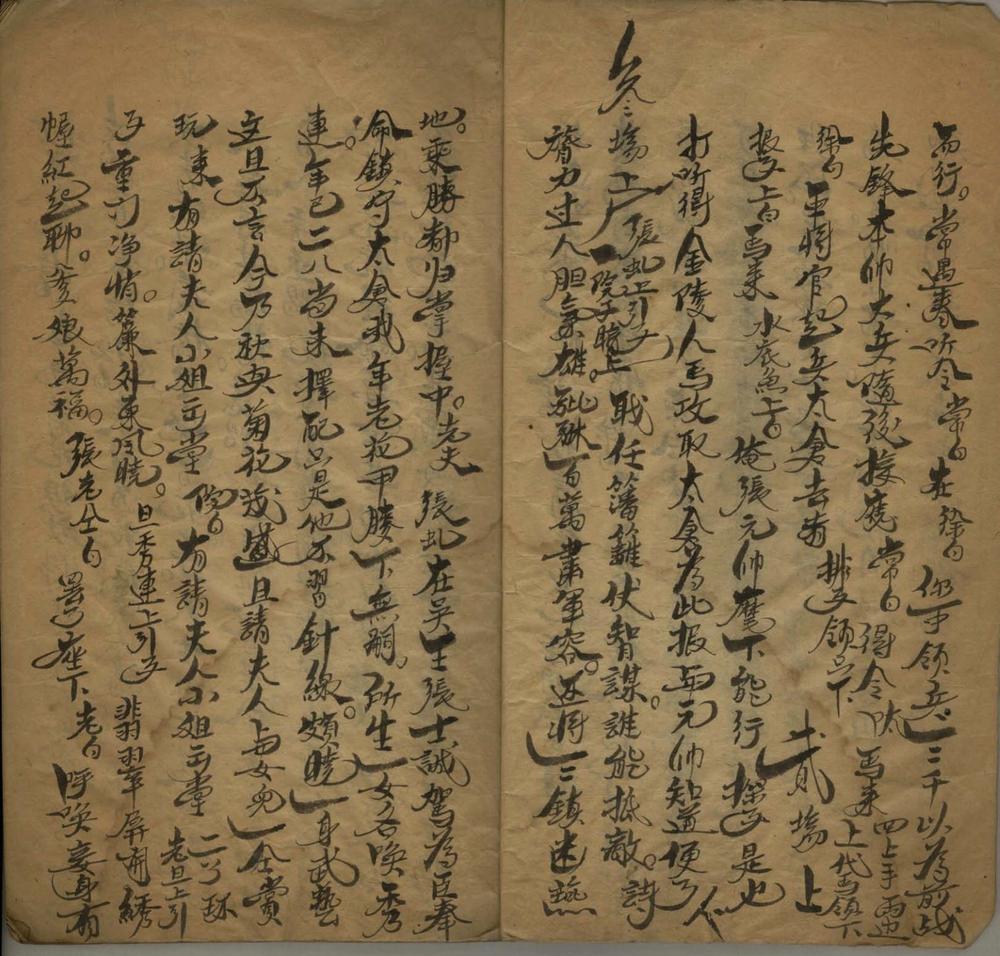 而行。常遇春听令 常白 在 徐白 你可領兵三千以為前戰
先鋒本帥大兵隨後接應 常白 得令 馬來 四上手両邊上代馬領下
徐白 軍將官起兵太倉去者 排子領兵下
貳場 上
報子上白 馬來 水底魚 白 俺張元帥麾下能行探子是也
打听得金陵人馬攻取太倉為此报與元帥知道便了 下
叁場 上 張虬上引子 職任藩籬伏智謀誰能抵敵。詩
膂力过人胆氣雄。貔貅百萬肅軍容。还將三鎮
地。乘勝都归掌握中。老夫 張虬在吳王張士誠駕為臣奉
命鎮守太倉我年老 膝下無嗣。所生一女名喚秀
連。年已二八尚未擇配只是他不習針線頗曉一身武藝
文且不言今乃秋與菊花茂盛且請夫人與女兒一仝賞
玩 來 有請夫人小姐出堂 院白 有請夫人小姐出堂 老旦上引
子 重門净悄。簾外東風曉。旦秀連上引子 翡翠屏開綉
幄紅起聊。爹娘萬福。張老仝白 罢了 座下 老白 呼喚妾身有